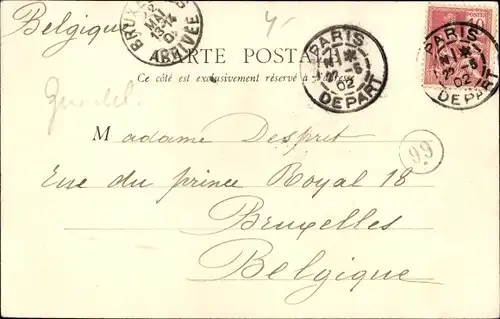 Belgique
4
BRUX
MAI
13-14
ARRIVÉE
CARTE POSTALE
Ce côté est exclusivement réservé à l'adresse
PARIS
02
DEPART
PARIS
02
DEPART
10
POSTES
Madame Despret
Rue du prince Royal 18
99
Bruxelles
Belgique